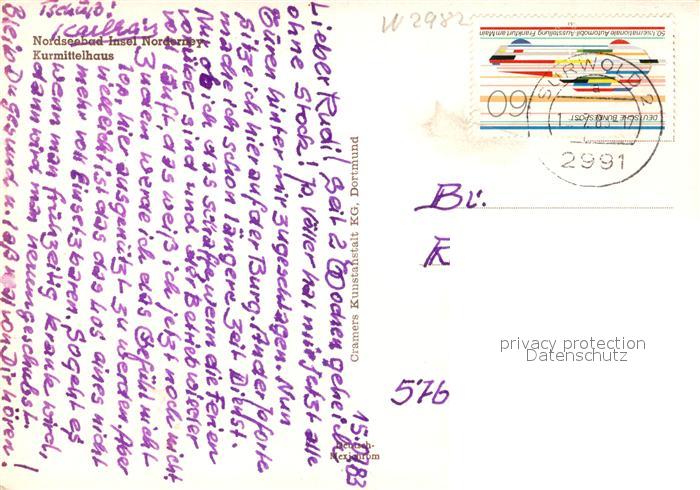 Tschüß!
Nordseebad Insel Norderney
Kurmittelhaus
15. 83
Lieber Rudi! Seit 2 Wochen gehe ich
ohne Stock! P. Völler hat mir jetzt alle
Türen hinter mir zugeschlagen. Nun
sitze ich hier auf der Burg. An der Pforte
mache ich schon längere Zeit Dienst.
Nun ob ich das schaffe, wenn die Ferien
vorüber sind und der Betrieb wieder
läuft, das weiß ich jetzt noch nicht.
Zudem werde ich das Gefühl nicht
los, hier ausgenützt zu werden. Aber
vielleicht ist das das Los eines nicht
mehr voll Einsetzbaren. So geht es
wenn man frühzeitig krank wird,
dann wird man herumgeschubst.
Bleib Du gesund u. laß mal von Dir hören!
Cramers Kunstanstalt KG, Dortmund
Deutsch-
Mexichrom
W 2982
50. Internationale Automobil-Ausstellung Frankfurt am Main
60
DEUTSCHE BUNDESPOST
SURWOLD 2
2991
Br.
R
576
privacy protection
Datenschutz